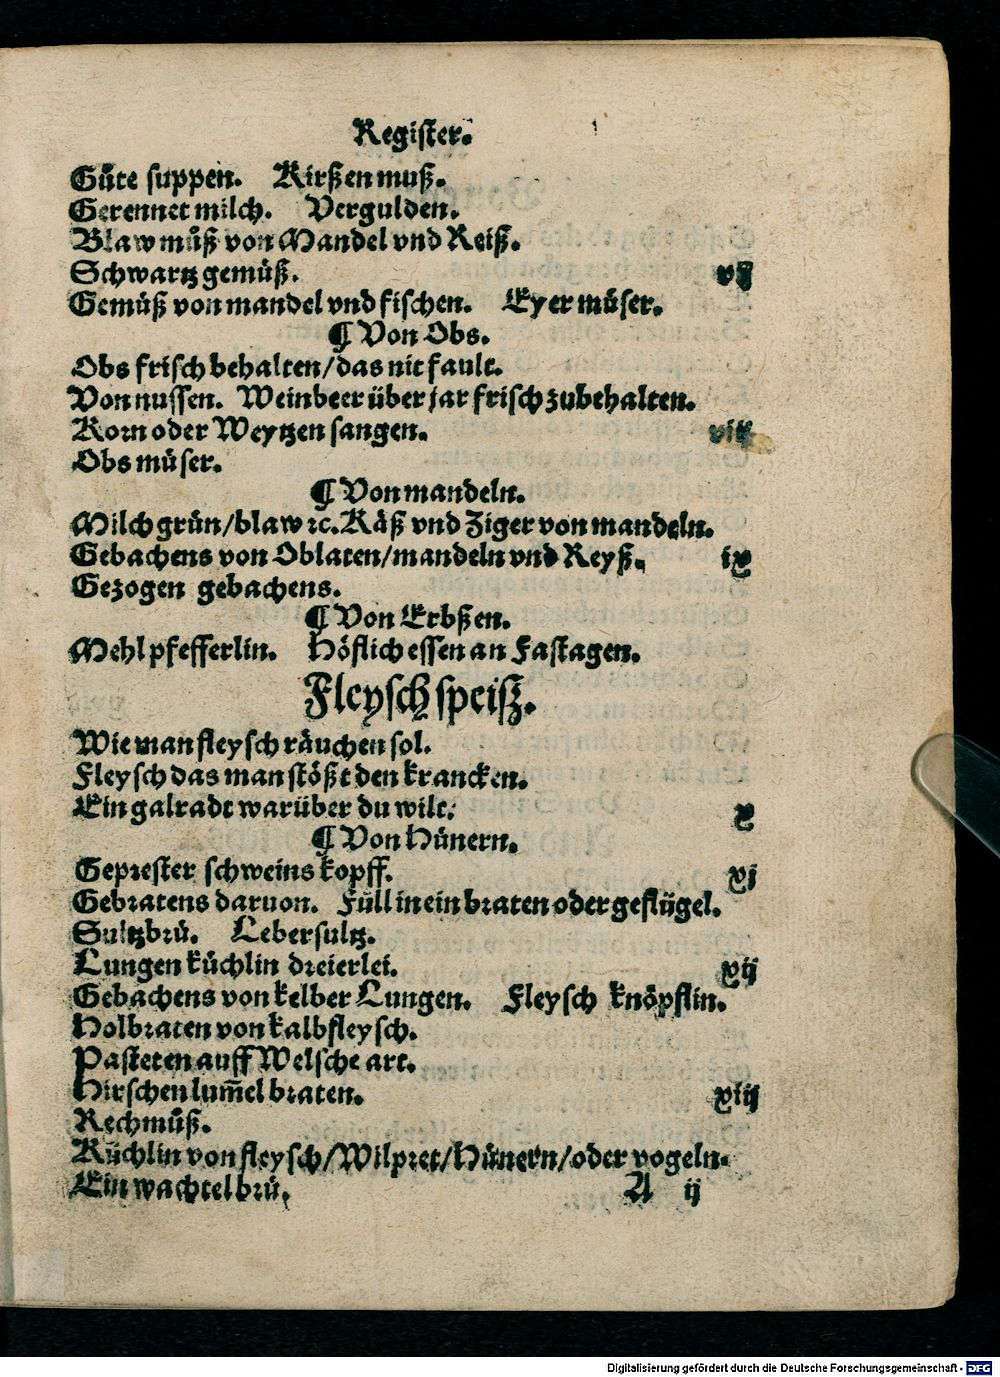 Register.
Gůte suppen. Kirßen muß.
Gerennet milch. Vergulden.
Blaw můß von Mandel vnd Reiß.
Schwartz gemüß. vij
Gemüß von mandel vnd fischen. Eyer müser.
¶ Von Obs.
Obs frisch behalten/das nit fault.
Von nussen. Weinbeer über jar frisch zubehalten.
Korn oder Weytzen sangen. viij
Obs müser.
¶ Von mandeln.
Milch grün/blaw ꝛc. Käß vnd Ziger von mandeln.
Gebachens von Oblaten/mandeln vnd Reyß. ix
Gezogen gebachens.
¶ Von Erbßen.
Mehl pfefferlin. Höflich essen an Fastagen.
Fleysch speisz.
Wie man fleysch räuchen sol.
Fleysch das man stößt den krancken.
Ein galradt warüber du wilt. x
¶ Von Hünern.
Geprester schweins kopff. xj
Gebratens daruon. Füll in ein braten oder geflügel.
Sultzbrü. Lebersultz.
Lungen küchlin dreierlei. xij
Gebachens von kelber Lungen. Fleysch knöpflin.
Holbraten von kalbfleysch.
Pasteten auff Welsche art.
Hirschen lum̃el braten. xiij
Rechmůß.
Küchlin von fleysch/Wilpret/Hünern/oder vogeln.
Ein wachtelbrü. A ij
Digitalisierung gefördert durch die Deutsche Forschungsgemeinschaft - DFG